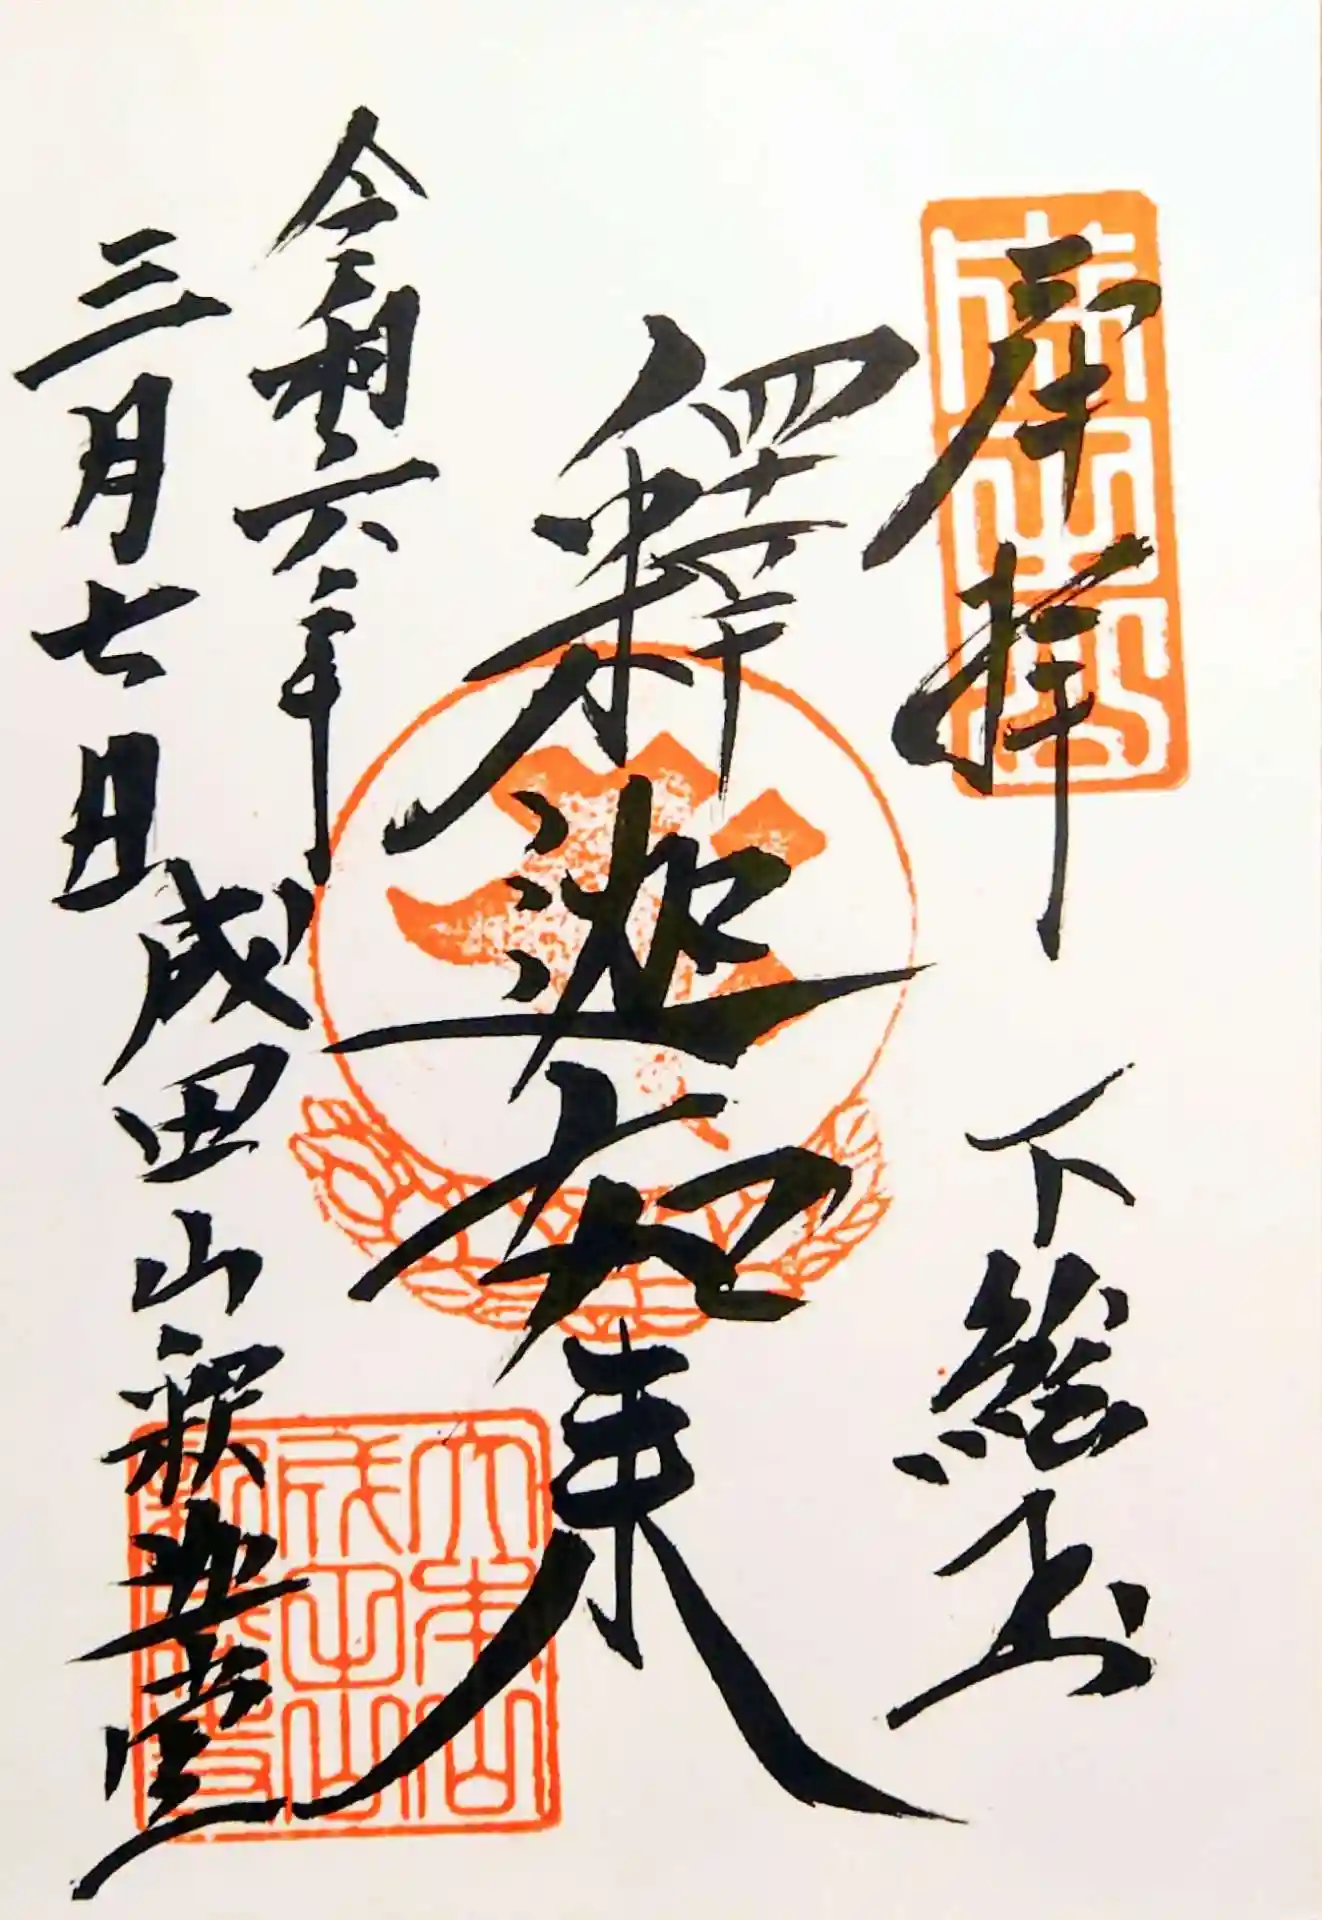 奉拝
下総国
釋迦如来
令和六年
三月七日
成田山釈迦堂
大本山
成田山
新勝寺